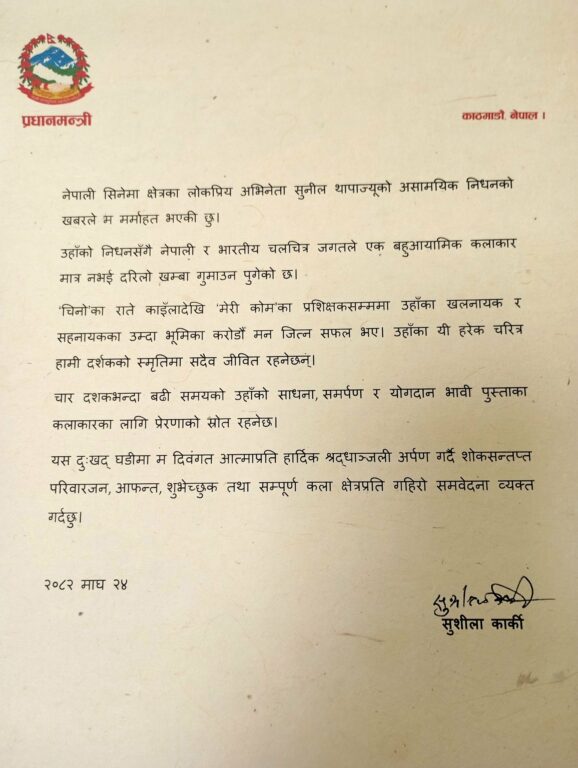 प्रधानमन्त्री
काठमाडौं, नेपाल ।
नेपाली सिनेमा क्षेत्रका लोकप्रिय अभिनेता सुनील थापाज्यूको असामयिक निधनको
खबरले म मर्माहत भएकी छु।
उहाँको निधनसँगै नेपाली र भारतीय चलचित्र जगतले एक बहुआयामिक कलाकार
मात्र नभई दरिलो खम्बा गुमाउन पुगेको छ।
'चिनो'का राते काइँलादेखि 'मेरी कोम'का प्रशिक्षकसम्ममा उहाँका खलनायक र
सहनायकका उम्दा भूमिका करोडौँ मन जित्न सफल भए। उहाँका यी हरेक चरित्र
हामी दर्शकको स्मृतिमा सदैव जीवित रहनेछन्।
चार दशकभन्दा बढी समयको उहाँको साधना, समर्पण र योगदान भावी पुस्ताका
कलाकारका लागि प्रेरणाको स्रोत रहनेछ।
यस दुःखद् घडीमा म दिवंगत आत्माप्रति हार्दिक श्रद्धाञ्जली अर्पण गर्दै शोकसन्तप्त
परिवारजन, आफन्त, शुभेच्छुक तथा सम्पूर्ण कला क्षेत्रप्रति गहिरो समवेदना व्यक्त
गर्दछु।
२०८२ माघ २४
सुशीला कार्की